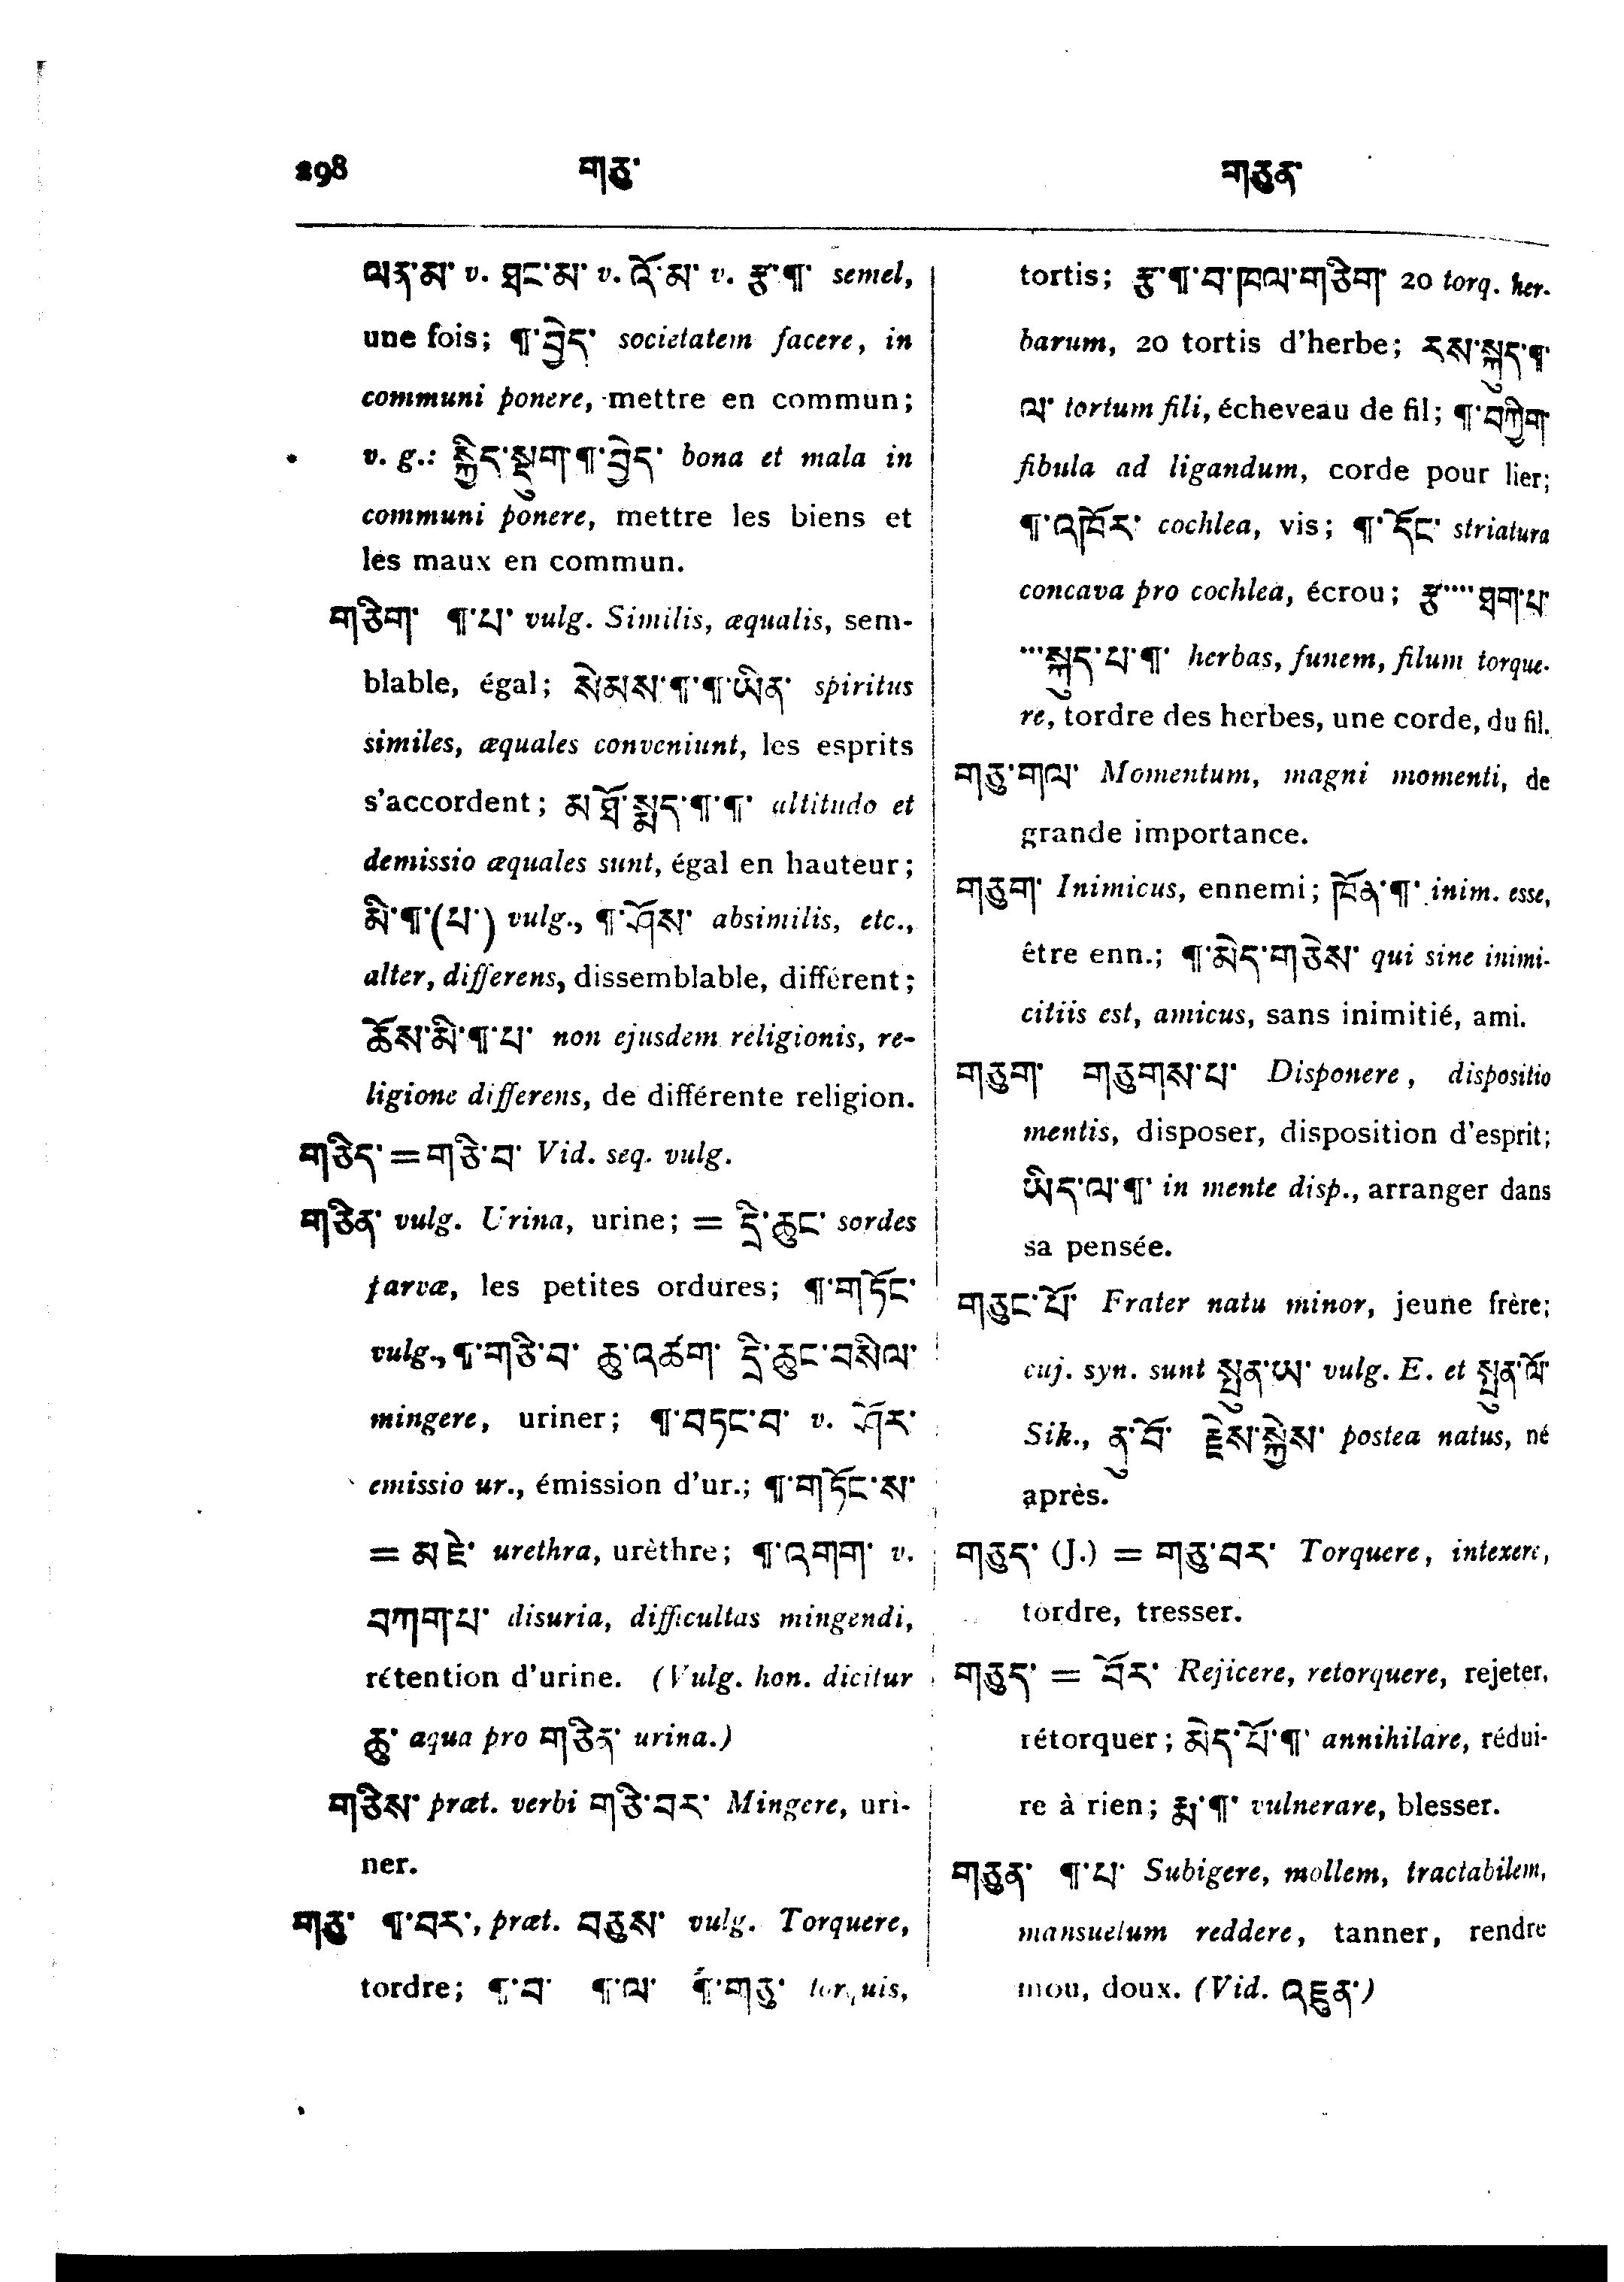 298 གཅུ་ གཅུན་
ལན་མ་ v. ཐང་མ་ v. འོ་མ་ v. རྩ་¶་ semel,
une fois; ¶་བྱེད་ societatem facere, in
communi ponere, mettre en commun;
v. g.: སྐྱིད་སྡུག་¶་བྱེད་ bona et mala in
communi ponere, mettre les biens et
les maux en commun.
གཅིག་ ¶་པ་ vulg. Similis, æqualis, sem-
blable, égal; སེམས་¶་¶་ཡིན་ spiritus
similes, æquales conveniunt, les esprits
s'accordent; མ་ཐོ་སྨད་¶་¶་ altitudo et
demissio æquales sunt, égal en hauteur;
མི་¶་(པ་) vulg., ¶་ཤོས་ absimilis, etc.,
alter, differens, dissemblable, différent;
ཆོས་མི་¶་པ་ non ejusdem religionis, re-
ligione differens, de différente religion.
གཅིད་ = གཅི་བ་ Vid. seq. vulg.
གཅིན་ vulg. Urina, urine; = དྲི་ཆུང་ sordes
parvæ, les petites ordures; ¶་གཏོང་
vulg., ¶་གཅི་བ་ ཆུ་འཚག་ དྲི་ཆུང་བསིལ་
mingere, uriner; ¶་བཏང་བ་ v. ཤོར་
emissio ur., émission d'ur.; ¶་གཏོང་ས་
= མ་ཇེ་ urethra, urèthre; ¶་འགག་ v.
བཀག་པ་ disuria, difficultas mingendi,
rétention d'urine. (Vulg. hon. dicitur
ཆུ་ aqua pro གཅིན་ urina.)
གཅིས་ præt. verbi གཅི་བར་ Mingere, uri-
ner.
གཅུ་ ¶་བར་, præt. བཅུས་ vulg. Torquere,
tordre; ¶་བ་ ¶་ལ་ ¶་གཅུ་ torquis,
tortis; རྩ་¶་བ་ཁལ་གཅིག་ 20 torq. her-
barum, 20 tortis d'herbe; རས་སྐུད་¶་
ལ་ tortum fili, écheveau de fil; ¶་བཀྱིག་
fibula ad ligandum, corde pour lier;
¶་འཁོར་ cochlea, vis; ¶་དོང་ striatura
concava pro cochlea, écrou; རྩ་···· ཐག་པ་
···སྐུད་པ་¶་ herbas, funem, filum torque-
re, tordre des herbes, une corde, du fil.
གཅུ་གལ་ Momentum, magni momenti, de
grande importance.
གཅུག་ Inimicus, ennemi; ཁོན་¶་ inim. esse,
être enn.; ¶་མེད་གཅེས་ qui sine inimi-
citiis est, amicus, sans inimitié, ami.
གཅུག་ གཅུགས་པ་ Disponere, dispositio
mentis, disposer, disposition d'esprit;
ཡིད་ལ་¶་ in mente disp., arranger dans
sa pensée.
གཅུང་པོ་ Frater natu minor, jeune frère;
cuj. syn. sunt སྤུན་ཡ་ vulg. E. et སྤུན་ལོ་
Sik., ནུ་བོ་ རྗེས་སྐྱེས་ postea natus, né
après.
གཅུད་ (J.) = གཅུ་བར་ Torquere, intexere,
tordre, tresser.
གཅུད་ = བོར་ Rejicere, retorquere, rejeter,
rétorquer; མེད་པོ་¶་ annihilare, rédui-
re à rien; རྨ་¶་ vulnerare, blesser.
གཅུན་ ¶་པ་ Subigere, mollem, tractabilem,
mansuetum reddere, tanner, rendre
mou, doux. (Vid. འཇུན་)